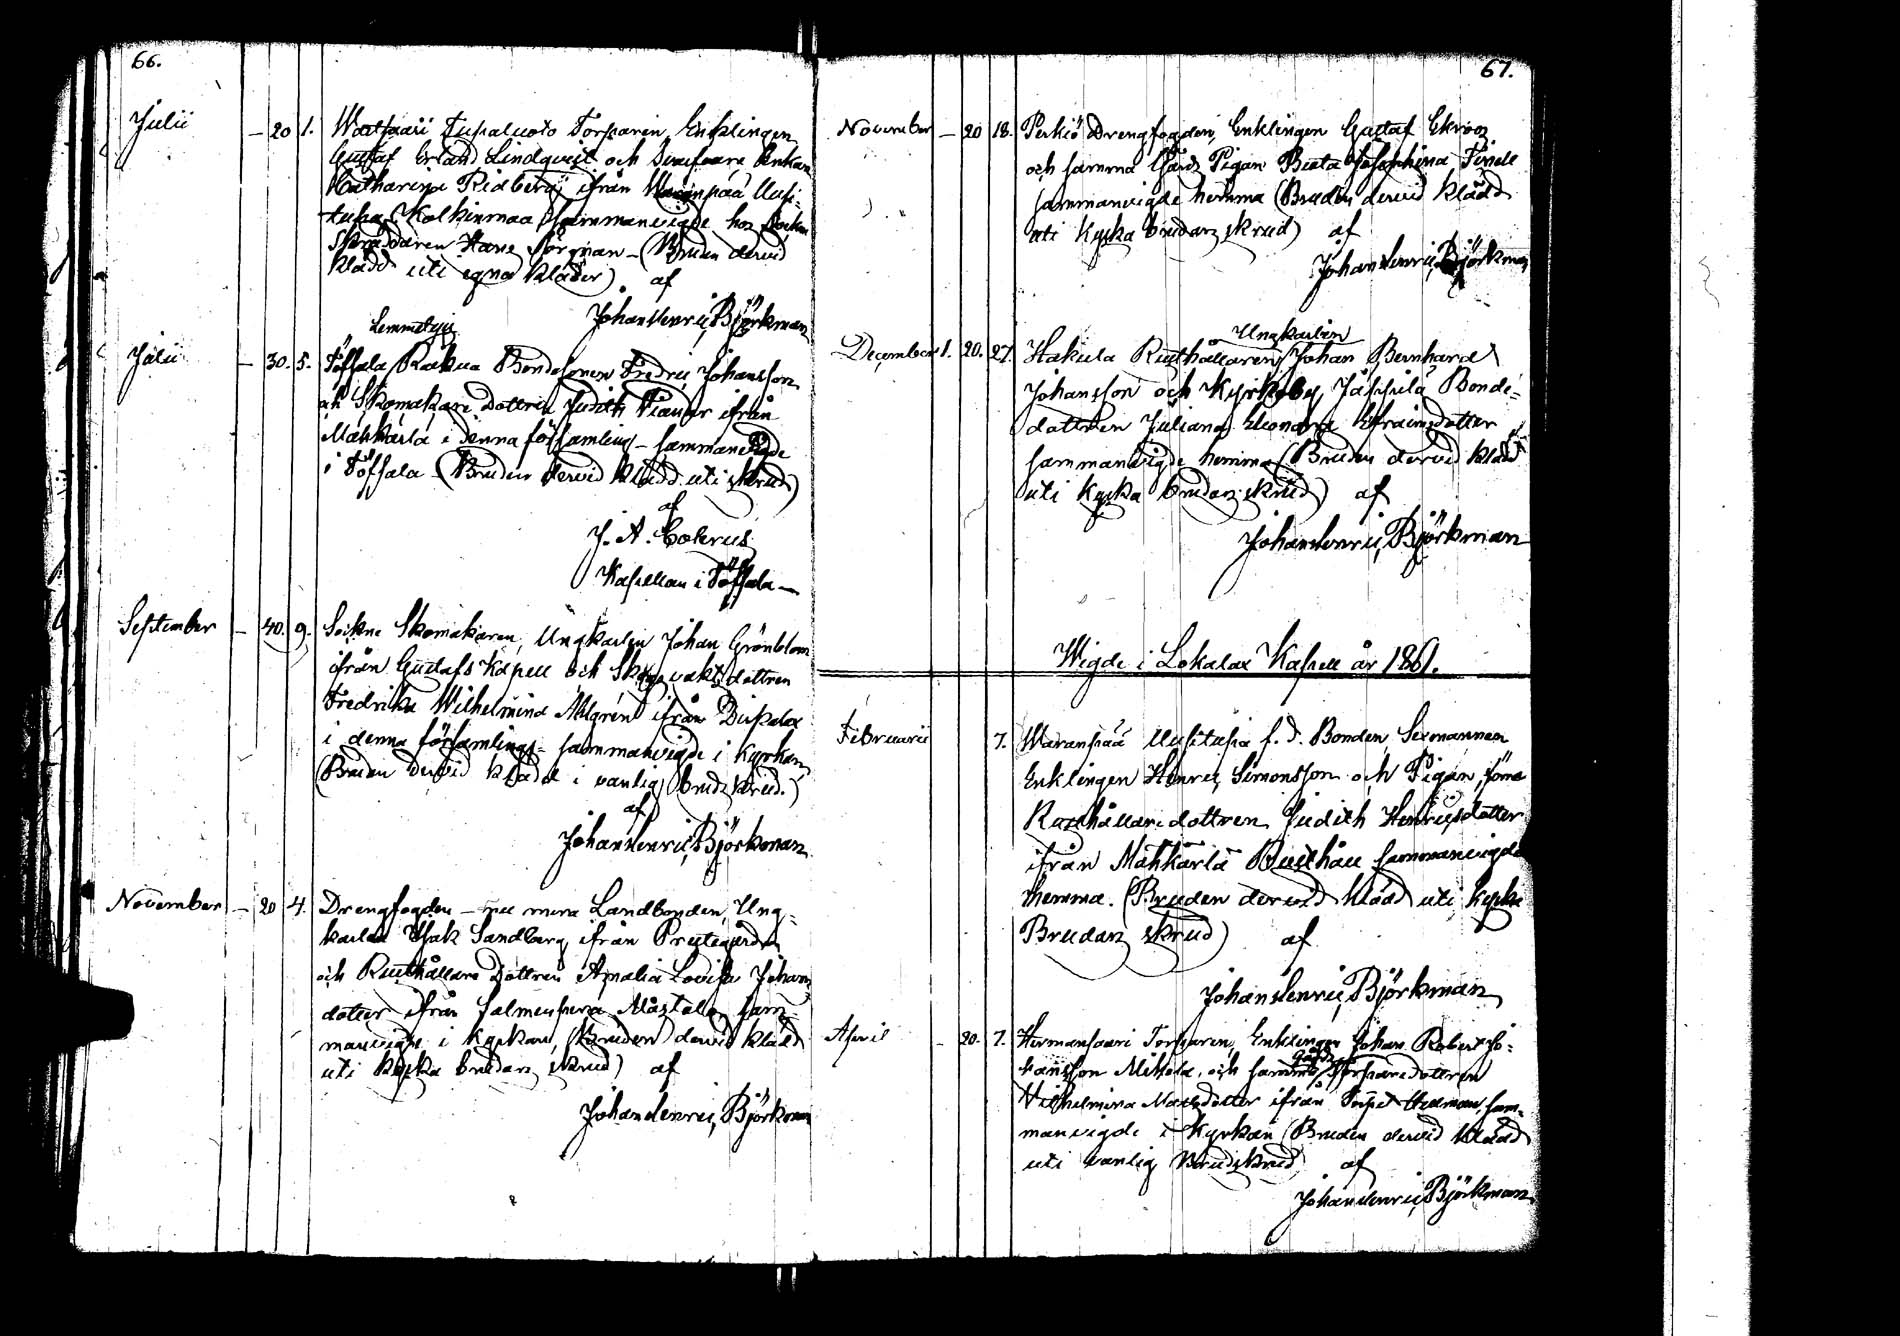 66.
Julii — 20 1. Torparen, Enklingen
Gustaf Erland Lindqvist och Enkan
Catharina Ridberg ifrån Waranpää Uusi-
tupa, Kalkinmaa sammanvigde hos Sockne
Skräddaren Hans Bergman — (Bruden dervid
klädd uti egna kläder) af
Johan Henric Björkman
Lemmetyis
Julii — 30. 5. Töfsala Bondesonen Fredric Johansson
och Skomakare Dottren Judith ifrån
Mahkarla i denna församling — sammanvigde
i Töfsala — (Bruden dervid klädd uti skrud)
af
J. A. Cokerus
Kapellan i Töfsala —
September — 40. 9. Sockne Skomakaren, Ungkarlen Johan Grönblom
ifrån Gustafs Kapell och Skogsvaktsdottren
Fredrika Wilhelmina Ahlgren ifrån Dupelax
i denna församling — sammanvigde i Kyrkan,
(Bruden dervid klädd i vanlig brudskrud.)
af
Johan Henric Björkman
November — 20 4. Drengfogden — nu mera Landbonden, Ung-
karlen Isak Sandberg ifrån Prestegården
och Rusthållare Dottren Amalia Lovisa Johans
dotter ifrån Salmenperä sam-
manvigde i Kyrkan, (Bruden dervid klädd
uti Kyrko brudars skrud) af
Johan Henric Björkman
67.
November — 20 18. Perkiö Drengfogden, Enklingen Gustaf Ekroos
och samma Gårds Pigan Beata Josephina
sammanvigde hemma (Bruden dervid klädd
uti Kyrko brudars skrud) af
Johan Henric Björkman
Ungkarlen
December 1. 20. 27. Hakula Rusthållaren, Johan Bernhard
Johansson och Kyrkoby Jäppilä Bonde-
dottren Juliana Eleonora Efraimsdotter
sammanvigde hemma (Bruden dervid klädd
uti Kyrko brudars skrud) af
Johan Henric Björkman
Wigde i Lokalax Kapell år 1861.
Februarii 7. Waranpää Uusitupa f. d. Bonden, Sexmannen
Enklingen Henric Simonsson och Pigan, förra
Rusthållaredottren Judith Henricsdotter
ifrån Mahkarla Rusthåll sammanvigde
hemma. (Bruden dervid klädd uti Kyrko
Brudars skrud) af
Johan Henric Björkman
April — 20. 7. Hermansaari Torparen, Enklingen Johan Robert Jo-
Gårds
hansson och samma Torparedottren
Wilhelmina Matsdotter ifrån Torpet sam-
manvigde i Kyrkan (Bruden dervid klädd
uti vanlig Brudskrud) af
Johan Henric Björkman